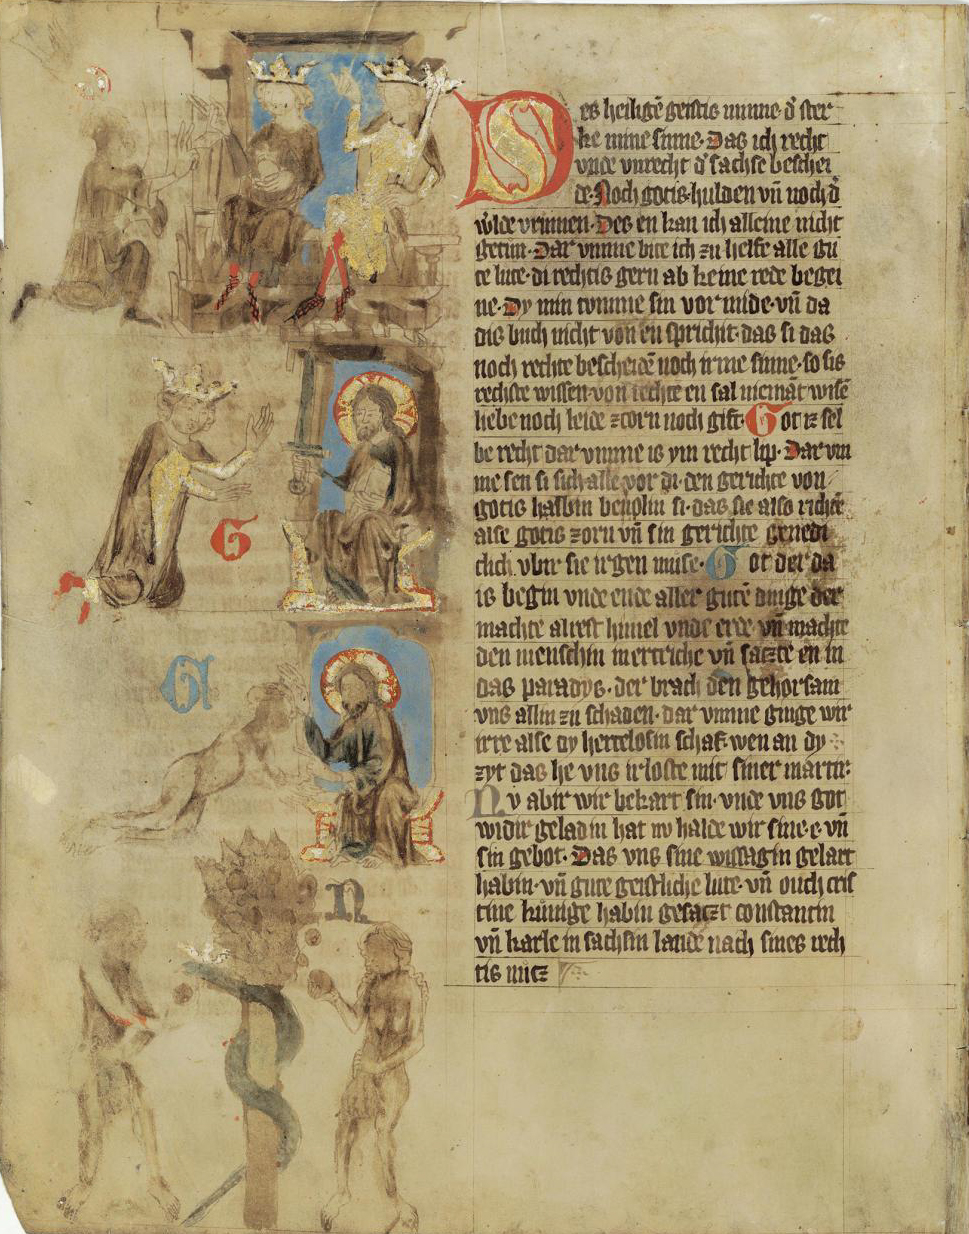 Des heiligē geistis minne· d̕ ster
ke mine sinne· Das ich recht
vnde vnrecht d̕ sachse beschei
de· Noch gotis hulden vn̄ noch d̕
w̕lde vrumen· Des en kan ich alleine nicht
getun· Dar vmme bite ich zu helfe alle gu
te lute· di rechtis gern ab keine rede begei
ne· Dy min tumme sin vor mide· vn̄ da
dis buch nicht von en spricht· das si das
noch rechte bescheidē noch irme sinne· so sis
rechste wissen· von rechte en sal niemāt wisē
liebe noch leide zcorn noch gift· Got iz sel
be recht dar vmme is ym recht lip· Dar vm
me sen si sich alle vor di· den gerichte von
gotis halbin beuolin si· das sie also richtē
alse gotis zorn vn̄ sin gerichte genedi
clich vbir sie irgen muse· Got der da
is begin vnde ende aller gutē dinge der
machte alrest himel vnde erde vn̄ machte
den menschin in ertriche vn̄ saczte en in
das paradys· der brach den gehorsam
vns allin zu schaden· dar vmme ginge wir
irre alse dy hertelosin schaf· wen an dy
zyt das he vns irloste mit siner martir·
Nv abir wir bekart sin· vnde vns got
widir geladin hat nv halde wir sine· e· vn̄
sin gebot· Das vns sine wissagin gelart
habin· vn̄ gute geistliche lute· vn̄ ouch cris
tine kunige habin gesaczt constantin
vn̄ karle in sachsin lande nach sines rech
tis nutz
G
G
N